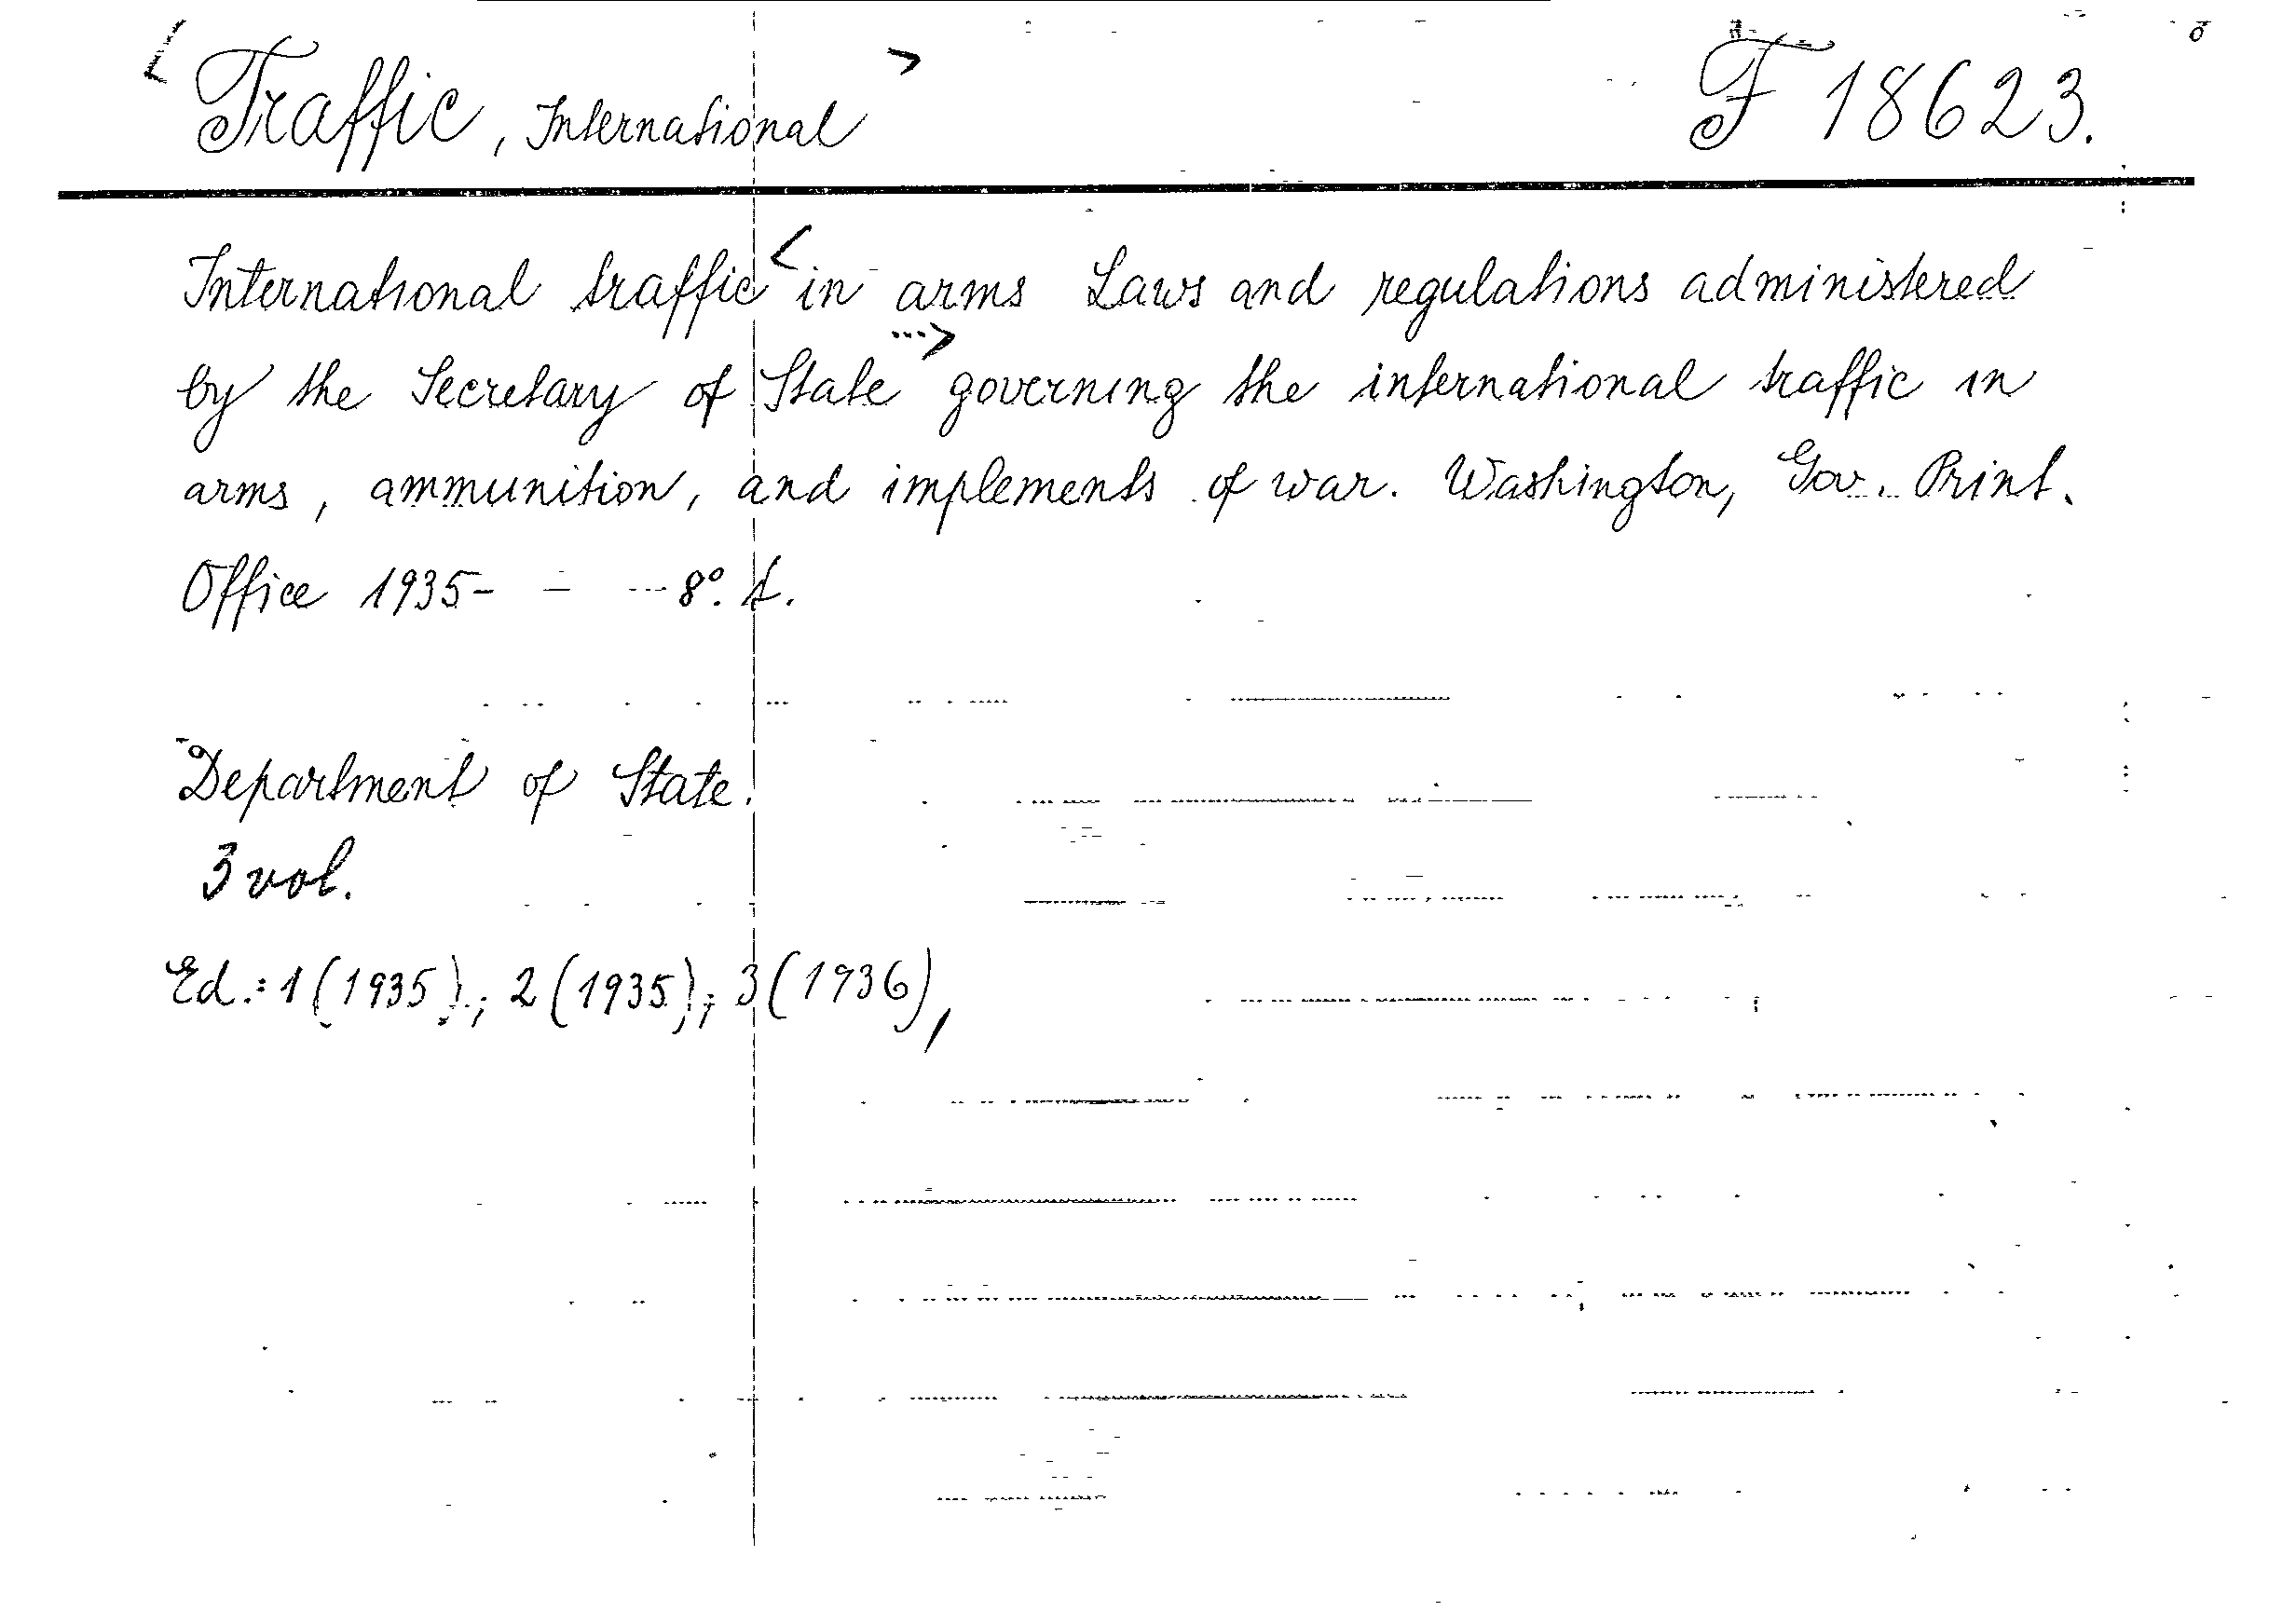 <Traffic, International> F 18623.
International traffic <in arms Laws and regulations administered
by the Secretary of State> governing the international traffic in
arms, ammunition, and implements of war. Washington, Gov. Print.
Office 1935- - 8°.
Department of State.
3 vol.
Ed.: 1 (1935); 2 (1935); 3 (1936),